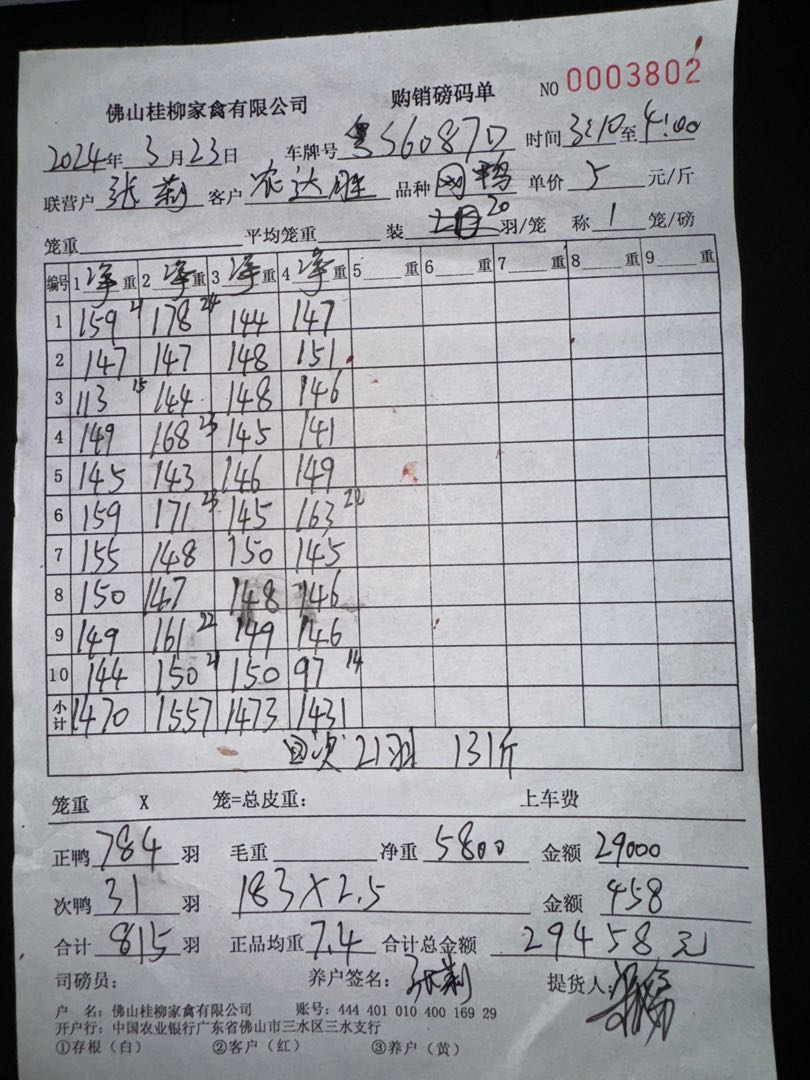 佛山桂柳家禽有限公司 购销磅码单 NO 0003802
2024年3月23日 车牌号 粤S6087D 时间 3:10至4:00
联营户 张莉 客户 农达胜 品种 国鸭 单价 5 元/斤
笼重 平均笼重 装 20 羽/笼 称 1 笼/磅
编号 1 净重 2 净重 3 净重 4 净重 5 重 6 重 7 重 8 重 9 重
1 159 21 178 24 144 147
2 147 147 148 151
3 113 15 144 148 146
4 149 168 23 145 141
5 145 143 146 149
6 159 171 23 145 163 22
7 155 148 150 145
8 150 147 148 146
9 149 161 22 149 146
10 144 150 21 150 97 14
小计 1470 1557 1473 1431
回次 21羽 131斤
笼重 X 笼=总皮重: 上车费
正鸭 784 羽 毛重 净重 5800 金额 29000
次鸭 31 羽 183×2.5 金额 458
合计 815 羽 正品均重 7.4 合计总金额 29458元
司磅员: 养户签名: 张莉 提货人:
户 名: 佛山桂柳家禽有限公司 账号: 444 401 010 400 169 29
开户行: 中国农业银行广东省佛山市三水区三水支行
①存根(白) ②客户(红) ③养户(黄)